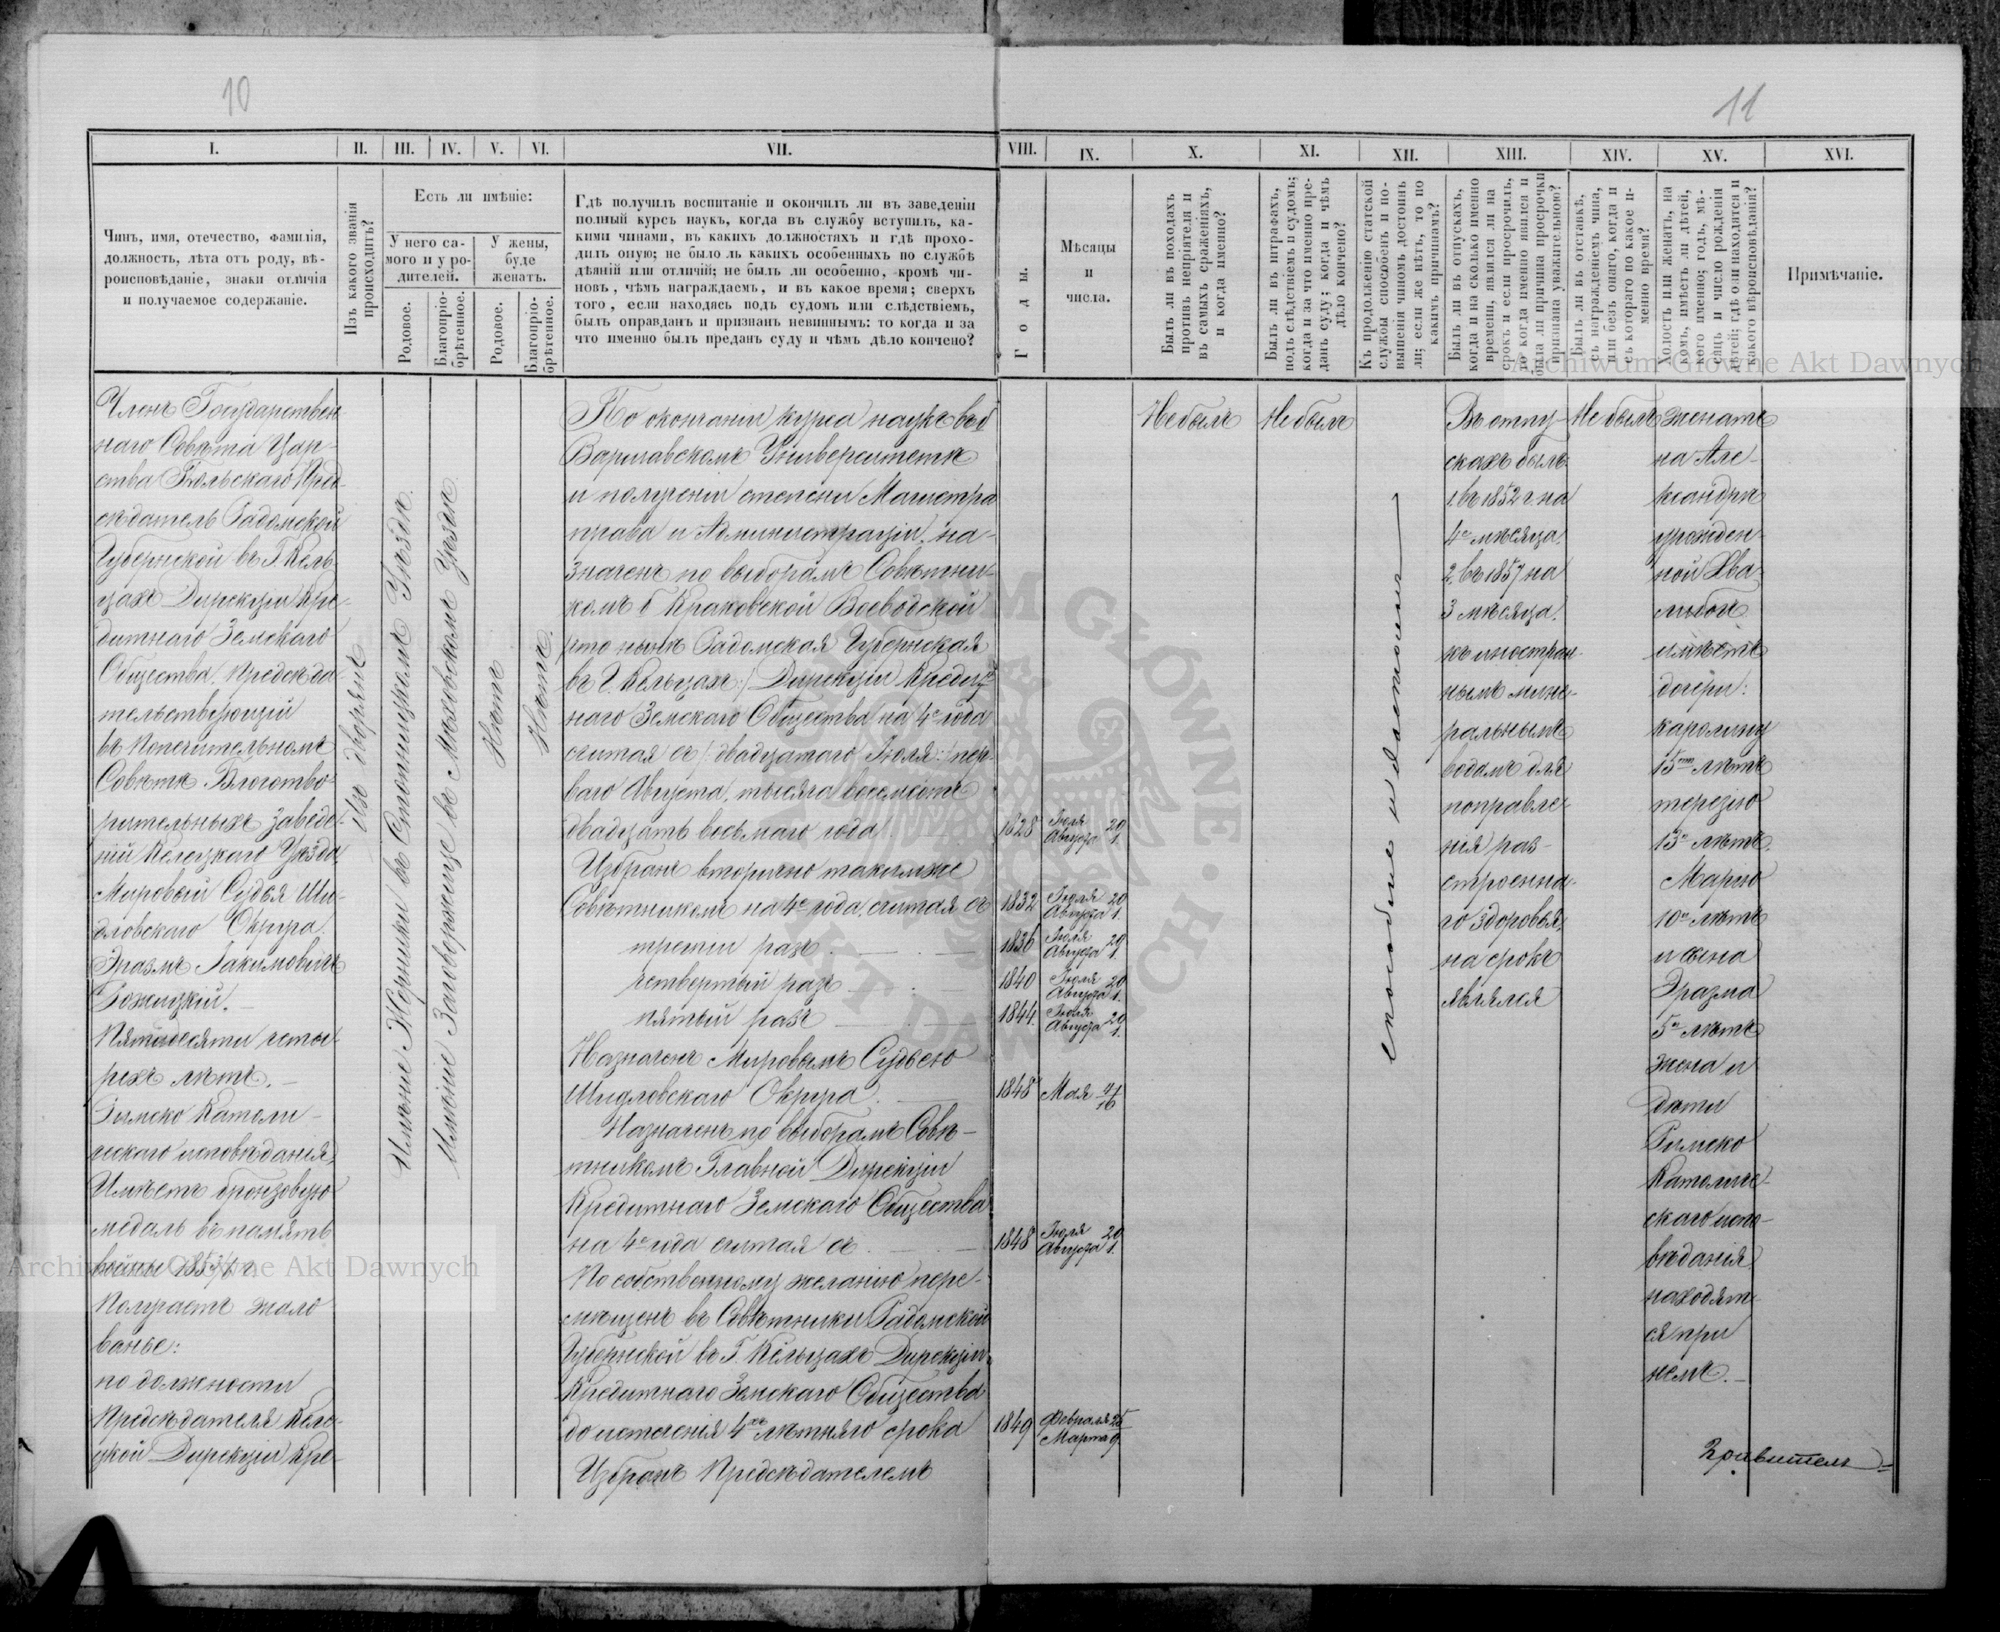 10
11
I.
II.
III.
IV.
V.
VI.
VII.
VIII.
IX.
X.
XI.
XII.
XIII.
XIV.
XV.
XVI.
Чинъ, имя, отечество, фамилія,
должность, лѣта отъ роду, вѣ-
роисповѣданіе, знаки отличія
и получаемое содержаніе.
Изъ какого званія
происходитъ?
Есть ли имѣніе:
У него са-
мого и у ро-
дителей.
У жены,
буде
женатъ.
Родовое.
Благопріо-
брѣтенное.
Родовое.
Благопріо-
брѣтенное.
Гдѣ получилъ воспитаніе и окончилъ ли въ заведеніи
полный курсъ наукъ, когда въ службу вступилъ, ка-
кими чинами, въ какихъ должностяхъ и гдѣ прохо-
дилъ оную; не было ль какихъ особенныхъ по службѣ
дѣяній или отличій; не былъ ли особенно, кромѣ чи-
новъ, чѣмъ награждаемъ, и въ какое время; сверхъ
того, если находясь подъ судомъ или слѣдствіемъ,
былъ оправданъ и признанъ невиннымъ: то когда и за
что именно былъ преданъ суду и чѣмъ дѣло кончено?
Годы.
Мѣсяцы
и
числа.
Былъ ли въ походахъ
противъ непріятеля и
въ самыхъ сраженіяхъ,
и когда именно?
Былъ ли въ штрафахъ,
подъ слѣдствіемъ и судомъ;
когда и за что именно пре-
данъ суду; когда и чѣмъ
дѣло кончено?
Къ продолженію статской
службы способенъ и по-
вышенія чиномъ достоинъ
ли; если же нѣтъ, то по
какимъ причинамъ?
Былъ ли въ отпускахъ,
когда и на сколько именно
времени, явился ли на
срокъ и если просрочилъ,
то когда именно явился и
была ли причина просрочки
признана уважительною?
Былъ ли въ отставкѣ,
съ награжденіемъ чина,
или безъ онаго, когда и
съ котораго по какое и-
менно время?
Холостъ или женатъ, на
комъ, имѣетъ ли дѣтей,
кого именно; годъ, мѣ-
сяцъ и число рожденія
дѣтей; гдѣ они находятся и
какого вѣроисповѣданія?
Примѣчаніе.
Членъ Государствен
наго Совѣта Цар-
ства Польскаго Пред
сѣдатель Радомской
Губернской въ Г. Кель-
цахъ Дирекціи Кре-
дитнаго Земскаго
Общества, Предсѣда-
тельствующій
въ Попечительномъ
Совѣтѣ Благотво-
рительныхъ заведе-
ній Келецкаго Уѣзда
Мировый Судья Ши-
дловскаго Округа.
Эразмъ Іакимовичъ
Рожицкій.
Пятидесяти четы-
рехъ лѣтъ.
Римско Католи-
ческаго исповѣданія,
Имѣетъ бронзовую
медаль въ память
войны 1853/4 г.
Получаетъ жало
ванье:
по должности
Предсѣдателя Келе-
цкой Дирекціи Кре-
Изъ дворянъ
Имѣніе въ Стопницкомъ Уѣздѣ.
Имѣніе въ Мѣховскомъ Уѣздѣ
Нѣтъ
Нѣтъ.
По окончаніи курса наукъ въ б
Варшавскомъ Университетѣ
и полученіи степени Магистра
права и Администраціи, на-
значенъ по выборамъ Совѣтни-
комъ б Краковской Воеводской
что нынѣ Радомская Губернская
въ Г. Кельцахъ:/ Дирекціи Кредит
наго Земскаго Общества на 4е года
считая съ /: двадцатаго Іюля :/ пер-
ваго Августа, тысяча восемьсотъ
двадцать восьмаго года.
1828
Іюля 20
Августа 1.
Избранъ вторично такимже
Совѣтникомъ на 4е года, считая съ
1832
Іюля 20
Августа 1.
третій разъ.
1836
Іюля 20
Августа 1.
четвертый разъ
1840
Іюля 20
Августа 1.
пятый разъ
1844.
Іюля 20
Августа 1.
Назначенъ Мировымъ Судьею
Шидловскаго Округа.
1848
Мая 4/16
Назначенъ по выборамъ Совѣ-
тникомъ Главной Дирекціи
Кредитнаго Земскаго Общества
на 4е года считая съ
1848
Іюля 20
Августа 1.
По собственному желанію пере-
мѣщенъ въ Совѣтники Радомской
Губернской въ Г. Кельцахъ Дирекціи
Кредитнаго Земскаго Общества
до истеченія 4хъ лѣтняго срока
1849
Февраля 25
Марта 9.
Избранъ Предсѣдателемъ
Не былъ
Не былъ
способенъ и достоинъ
Въ отпу-
скахъ былъ
1. въ 1852 г на
4е мѣсяца,
2. въ 1857 на
3 мѣсяца,
къ иностран
нымъ мине-
ральнымъ
водамъ для
поправле-
нія раз-
строенна-
го здоровья,
на срокъ
являлся
Не былъ
женатъ
на Але-
ксандрѣ
урожден-
ной Хва
либогъ
имѣетъ
дочери:
Каролину
15ти лѣтъ
Терезію
13и лѣтъ.
Марію
10и лѣтъ
и сына
Эразма
5и лѣтъ
жена и
дѣти
Римско
Католиче-
скаго испо-
вѣданія
находят-
ся при
немъ.
Archiwum Główne Akt Dawnych
Archiwum Główne Akt Dawnych
ARCHIWUM GŁÓWNE · AKT DAWNYCH ·